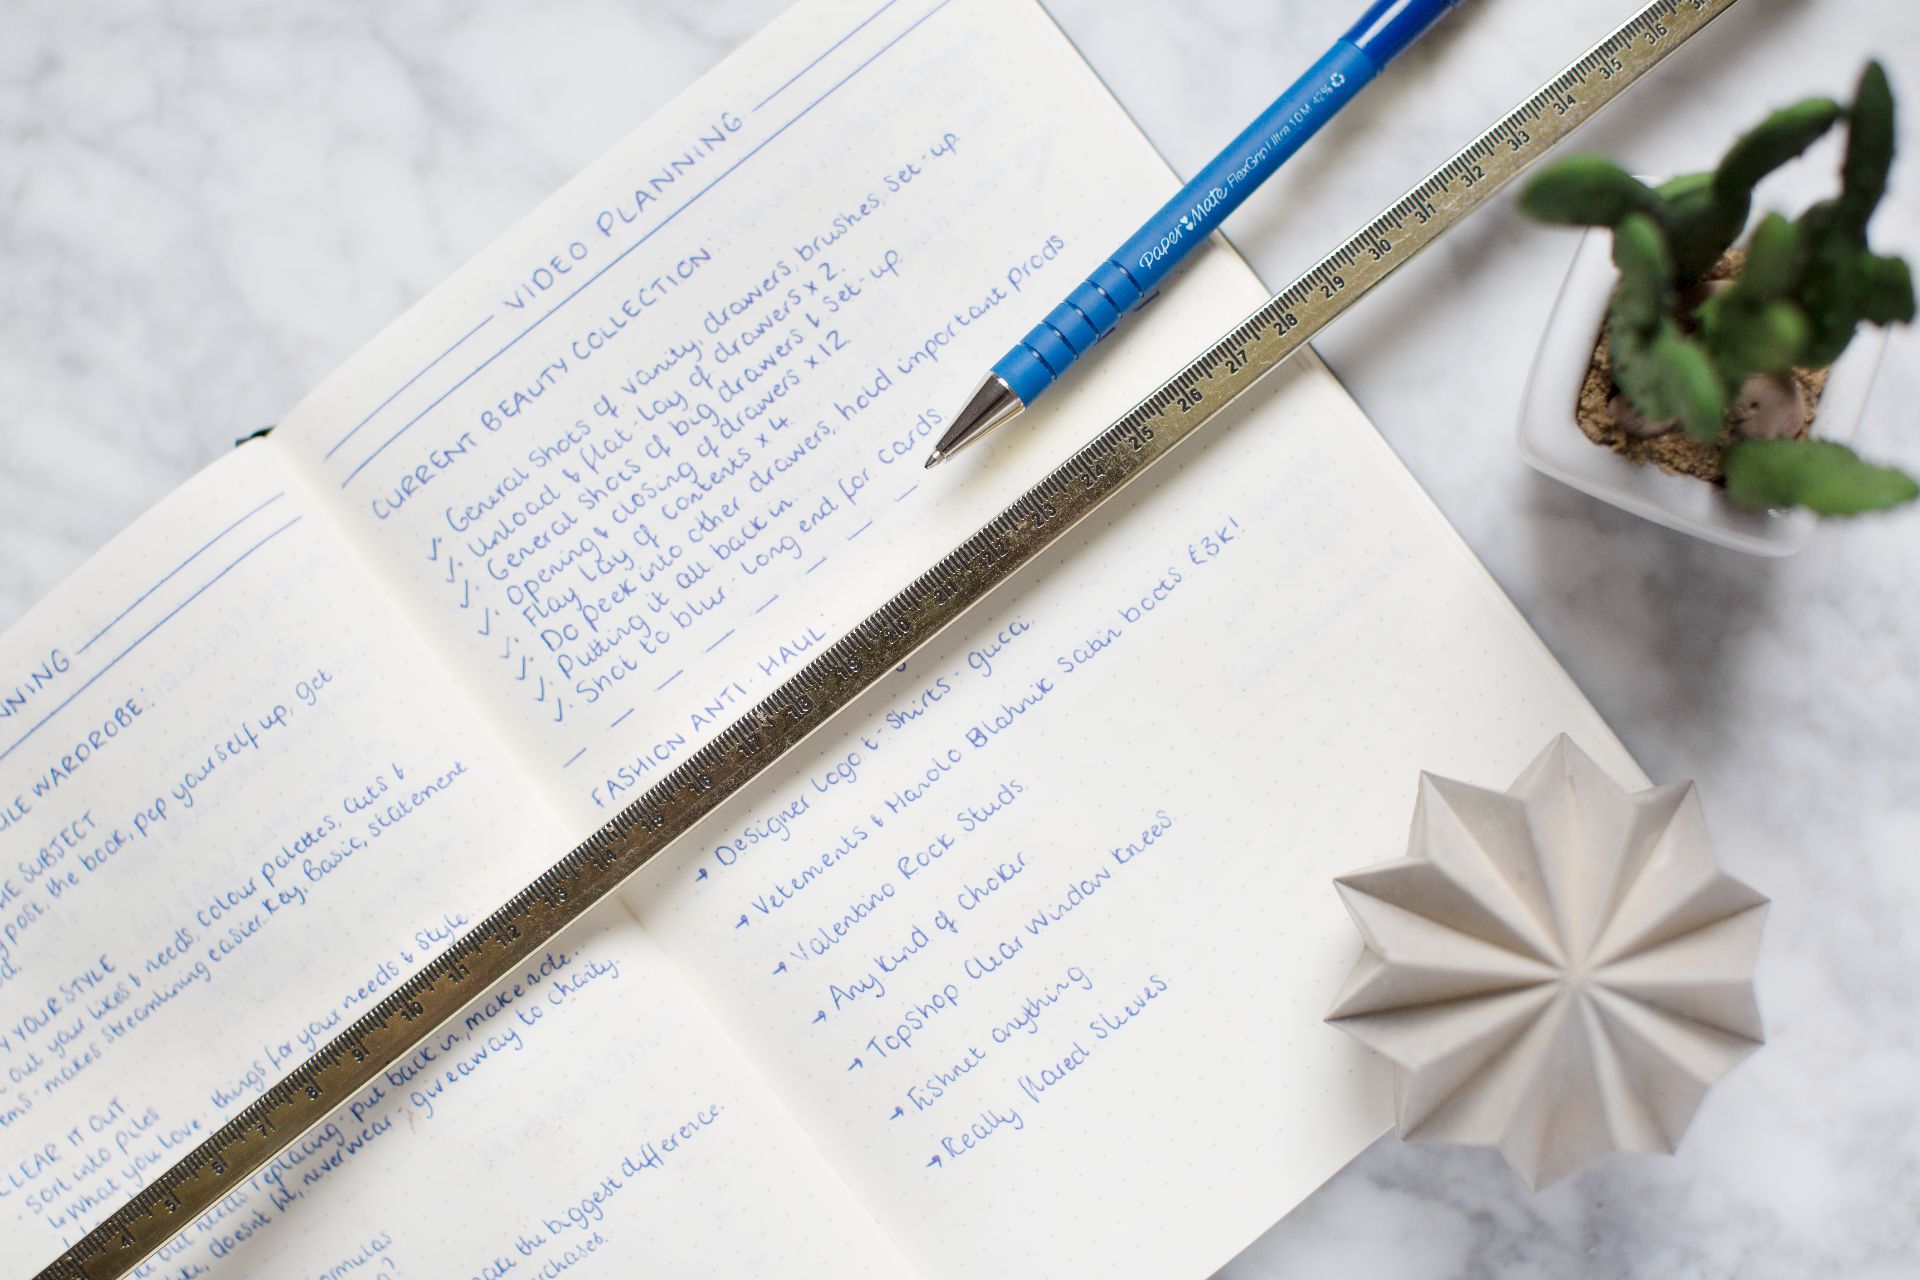 NNING
ULE WARDROBE:
HE SUBJECT
post, the book, pep yourself up, get
Y YOUR STYLE
out your likes & needs, colour palettes, cuts &
ems - makes streamlining easier. Key, Basic, statement
CLEAR IT OUT.
· Sort into piles
↳ What you love, things for your needs & style.
but needs replacing - put back in, make note.
doesn't fit, never wear - giveaway to charity.
ormulas
the biggest difference.
VIDEO PLANNING
CURRENT BEAUTY COLLECTION
✓. General shots of vanity, drawers, brushes, set-up.
✓. Unload & flat-lay of drawers x 2.
✓. General shots of big drawers & set-up.
✓. Opening & closing of drawers x 12
✓. Flay lay of contents x 4.
✓. Do peek into other drawers, hold important prods
✓. Putting it all back in.
✓. Shot to blur - long end for cards.
FASHION ANTI-HAUL.
→ Designer logo t-shirts - gucci.
→ Vetements & Manolo Blahnik Satin boots £3K!.
→ Valentino Rock Studs.
→ Any kind of choker.
→ TopShop Clear Window Knees.
→ Fishnet anything
→ Really flared sleeves.
Paper Mate FlexGrip Ultra 1.0 M 42%
4
5
6
7
8
9
10
11
12
13
14
15
16
17
18
19
20
21
22
23
24
25
26
27
28
29
30
31
32
33
34
35
36